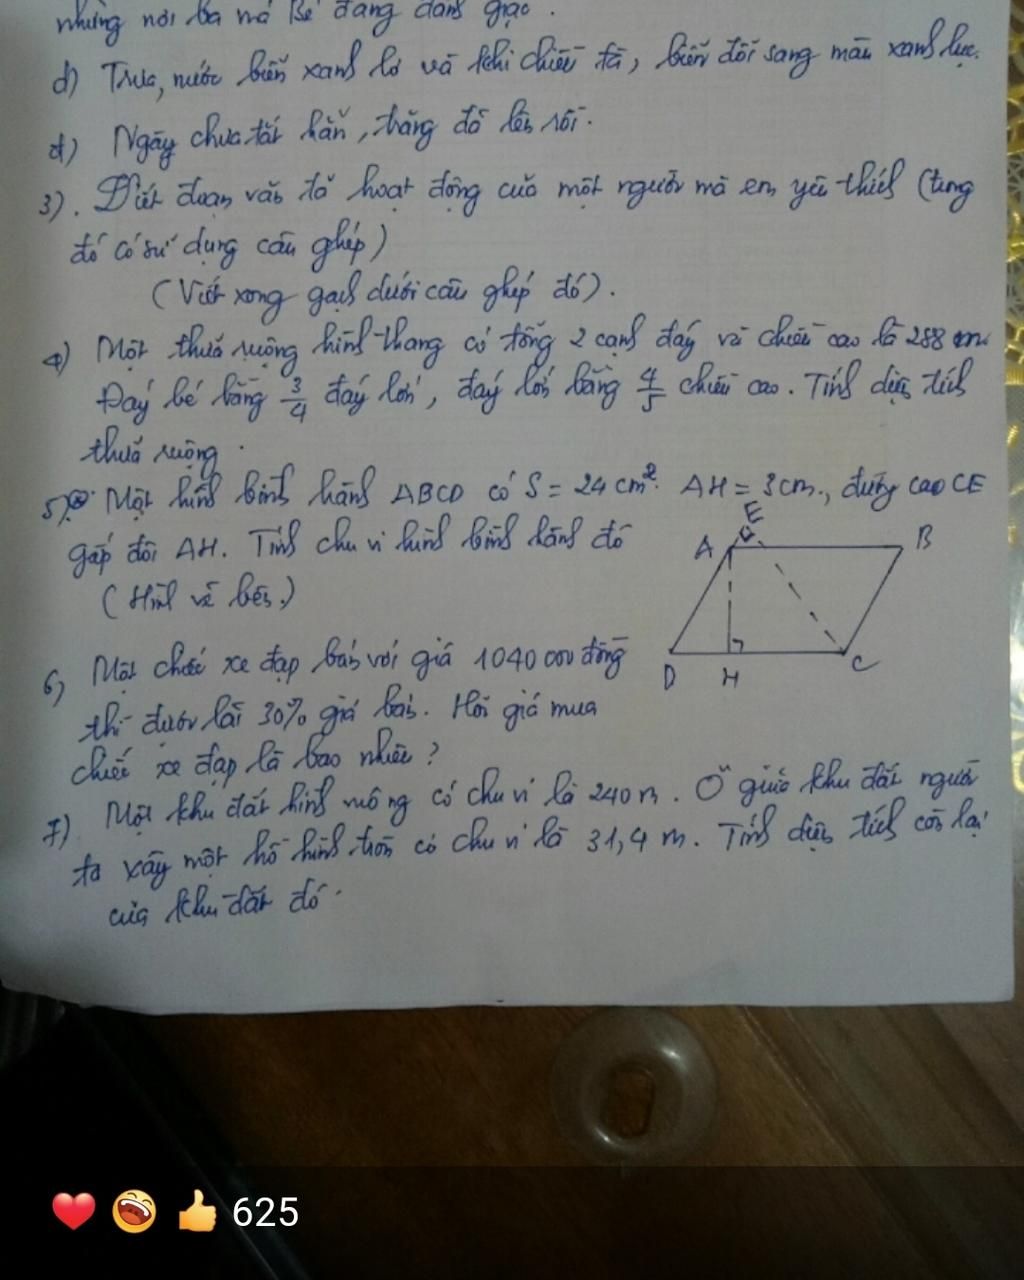 những nơi ba má Bé đang đánh giặc.
d) Trưa, nước biển xanh lơ và khi chiều tà, biển đổi sang màu xanh lục.
đ) Ngày chưa tắt hẳn, trăng đã lên rồi.
3). Viết đoạn văn tả hoạt động của một người mà em yêu thích (trong
đó có sử dụng câu ghép)
(Viết xong gạch dưới câu ghép đó).
4) Một thửa ruộng hình thang có tổng 2 cạnh đáy và chiều cao là 288 m.
Đáy bé bằng 3/4 đáy lớn, đáy lớn bằng 4/5 chiều cao. Tính diện tích
thửa ruộng.
5) Một hình bình hành ABCD có S = 24 cm². AH = 3cm., đường cao CE
gấp đôi AH. Tính chu vi hình bình hành đó
(Hình vẽ bên.)
E
A
B
D
H
C
6) Một chiếc xe đạp bán với giá 1040 000 đồng
thì được lãi 30% giá bán. Hỏi giá mua
chiếc xe đạp là bao nhiêu?
7) Một khu đất hình vuông có chu vi là 240 m. Ở giữa khu đất người
ta xây một hồ hình tròn có chu vi là 31,4 m. Tính diện tích còn lại
của khu đất đó.
625